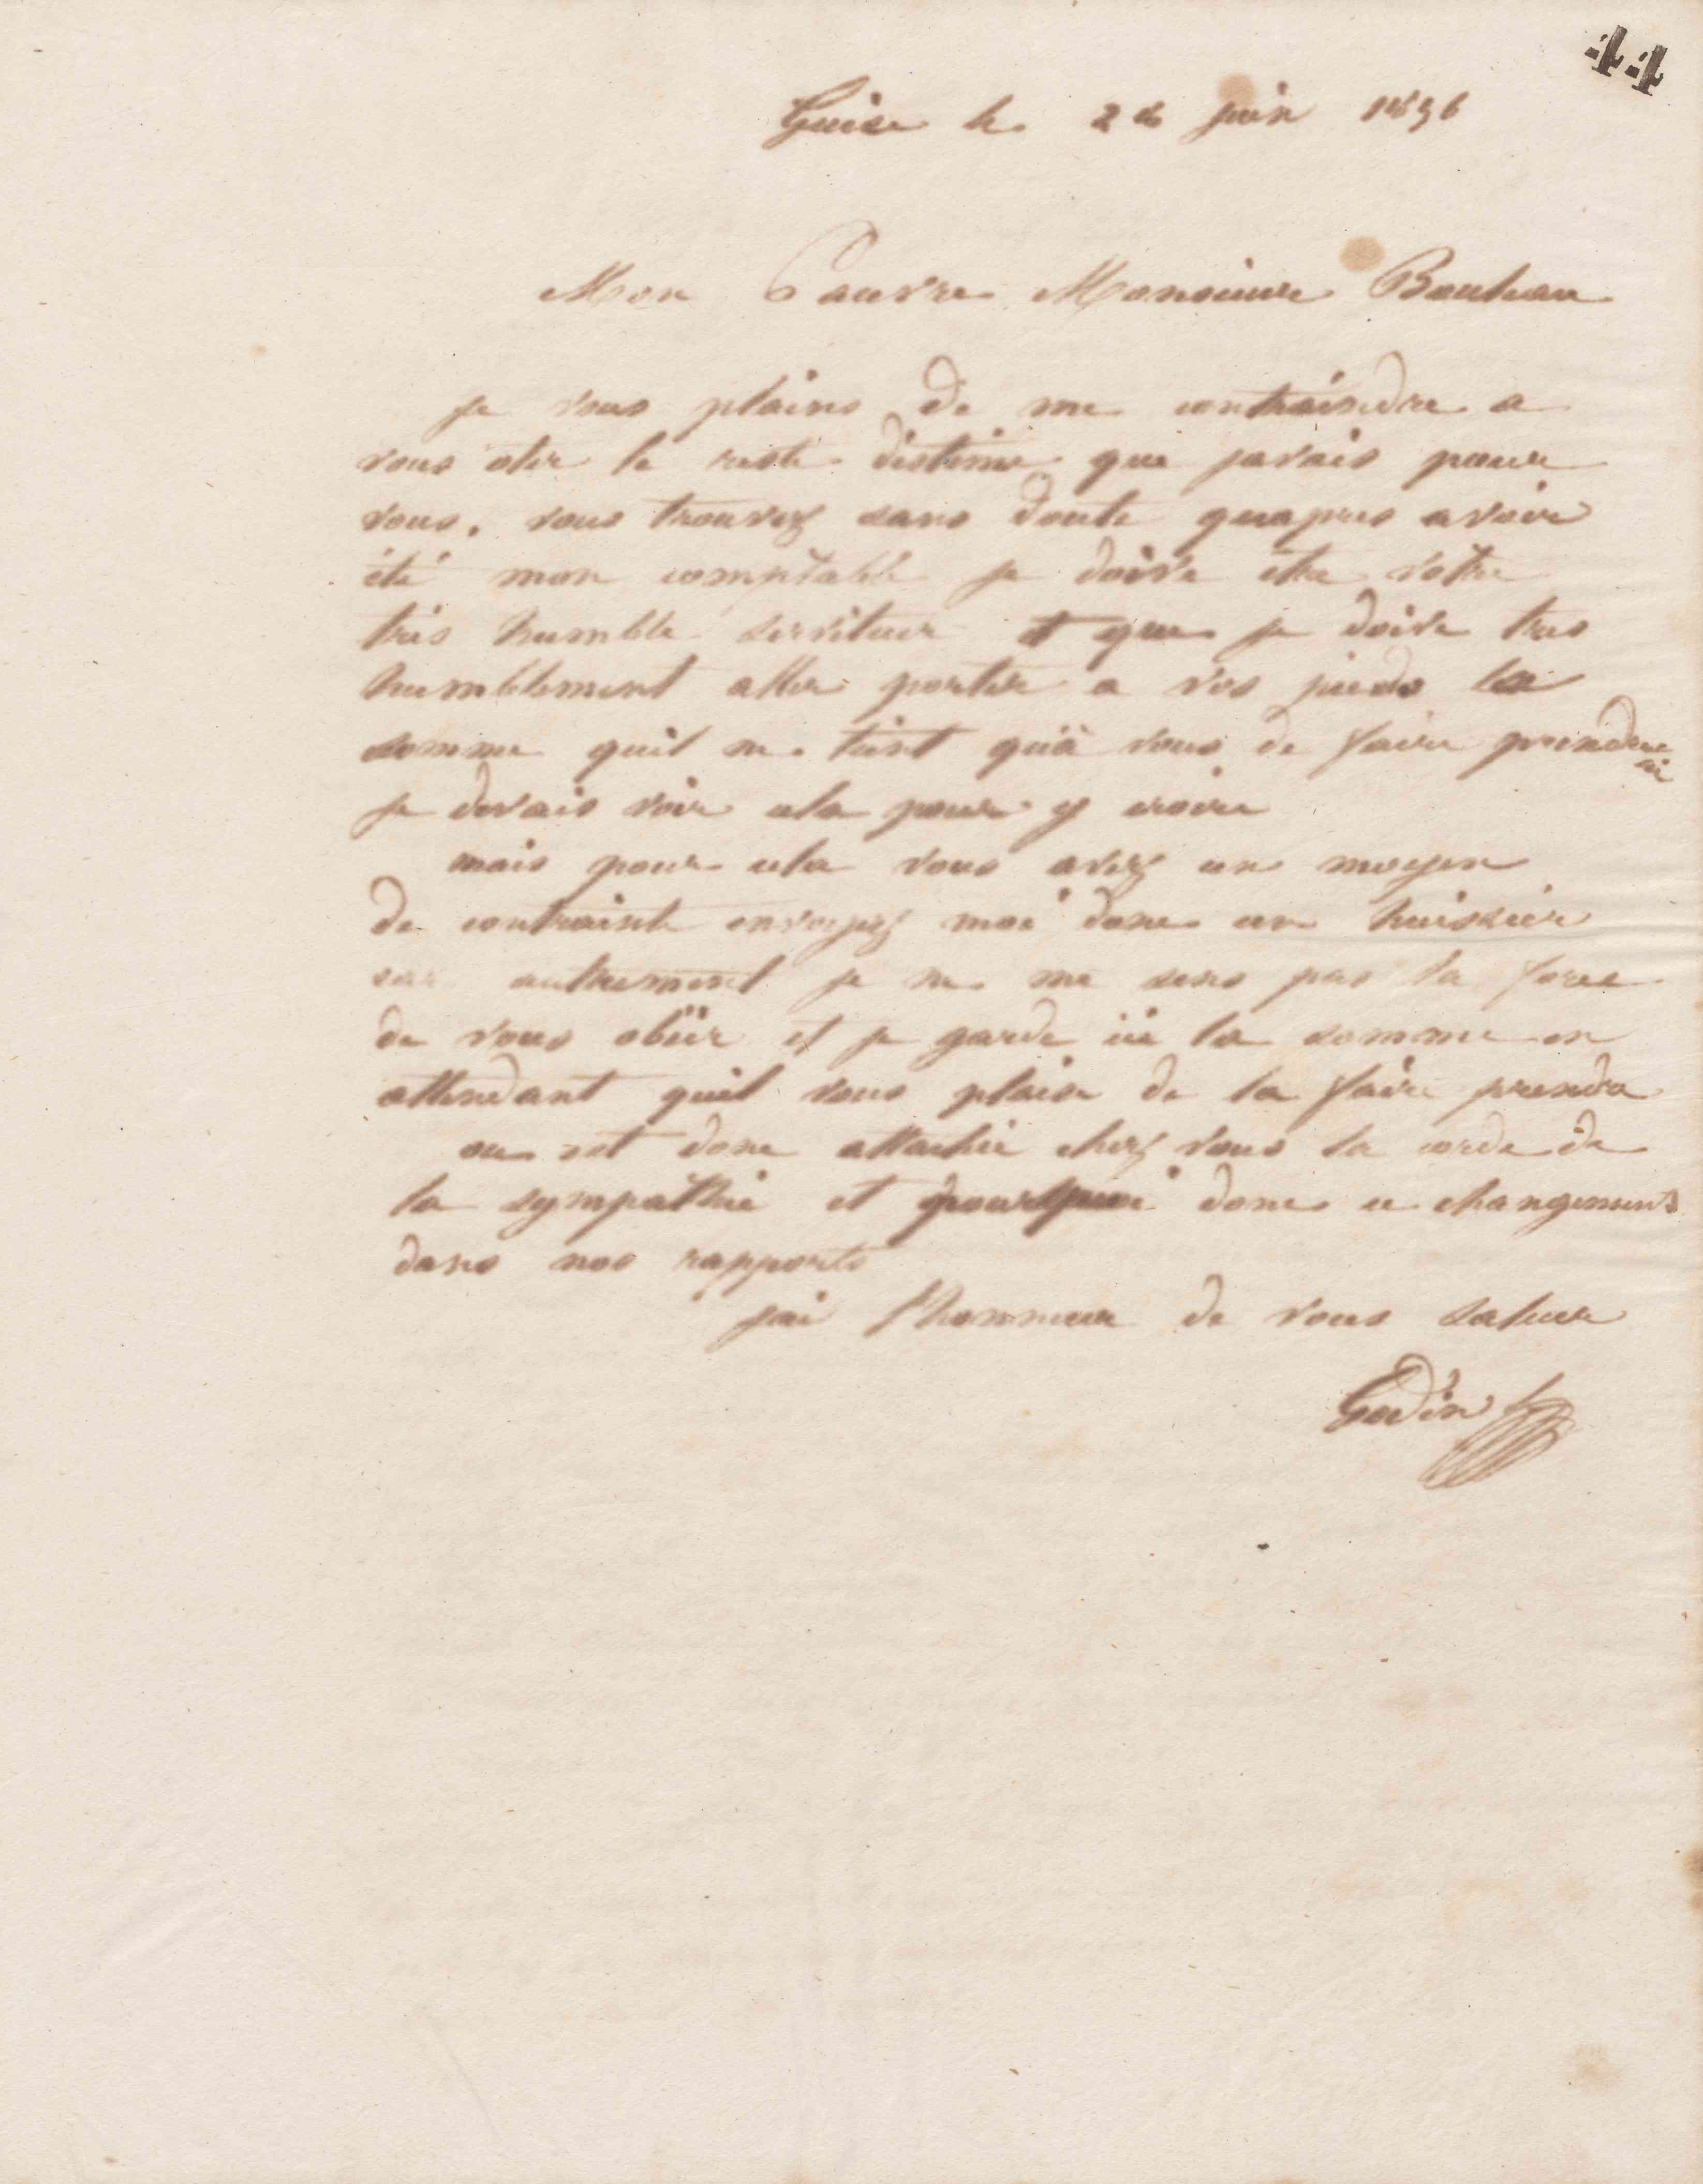 44
Guise le 26 juin 1856
Mon Pauvre Monsieur
je vous plains de me contraindre a
vous oter le reste destime que javais pour
vous. vous trouvez sans doute quapres avoir
été mon comptable je doive etre votre
très humble serviteur et que je doive tres
humblement aller porter a vos pieds la
somme quil ne tient qu'à vous de faire prendre
si
je devais voir cela pour y croire
mais pour cela vous avez un moyen
de contrainte envoyez moi donc un huissier
car autrement je ne me sens pas la force
de vous obéir et je garde ici la somme en
attendant quil vous plaise de la faire prendre
ou est donc attachée chez vous la corde de
la sympathie et pourquoi donc ce changement
dans nos rapports
jai l'honneur de vous saluer
Godin